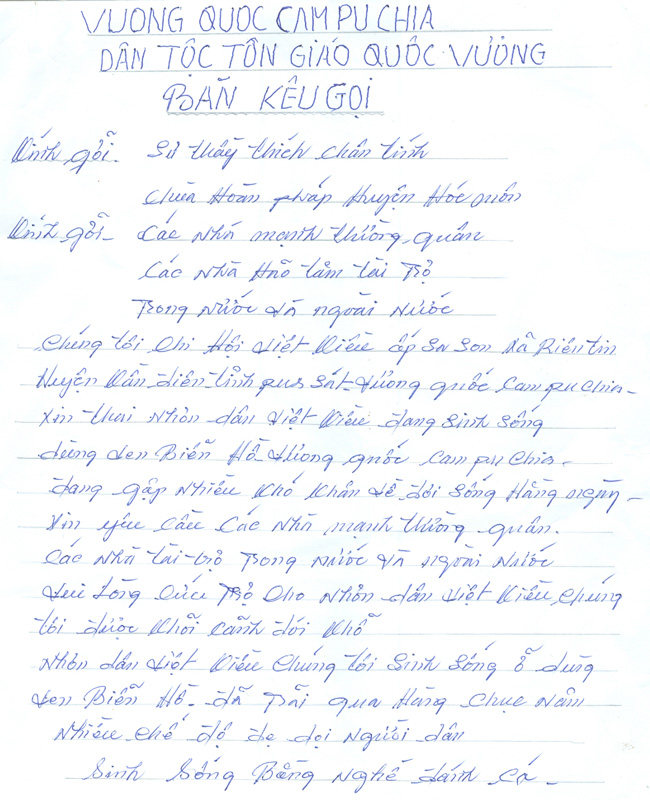 VƯƠNG QUỐC CAM PU CHIA
DÂN TỘC TÔN GIÁO QUỐC VƯƠNG
BẢN KÊU GỌI
Kính gởi - Sư thầy thích chân tính
Chùa Hoằn pháp Huyện Hóc môn
Kính gởi - Các Nhà mạnh thường quân
Các Nhà Hảo tâm tài Trợ
Trong Nước và ngoài Nước
Chúng tôi Chi Hội Việt Kiều ấp Sa Son Xã Riêntin
Huyện Kân-diên-tỉnh pus Sát-Vương quốc Cam pu chia-
Xin thai Nhôn dân Việt Kiều đang Sinh Sống
dùng ven Biển Hồ-Vương quốc Cam pu Chia-
đang gặp Nhiều Khó Khăn về đời Sống Hằng ngày-
Xin yêu cầu Các Nhà mạnh thường quân.
Các Nhà tài-trợ Trong nước và ngoài Nước
vui lòng Cứu Trợ Cho Nhôn dân Việt Kiều Chúng
tôi được Khỏi Cảnh đói Khổ
Nhôn dân Việt Kiều Chúng tôi Sinh Sống ở dùng
ven Biển Hồ-đã Trãi qua Hàng Chục Năm
Nhiều chế độ đe dọi Người dân
Sinh Sống Bằng Nghề đánh Cá-